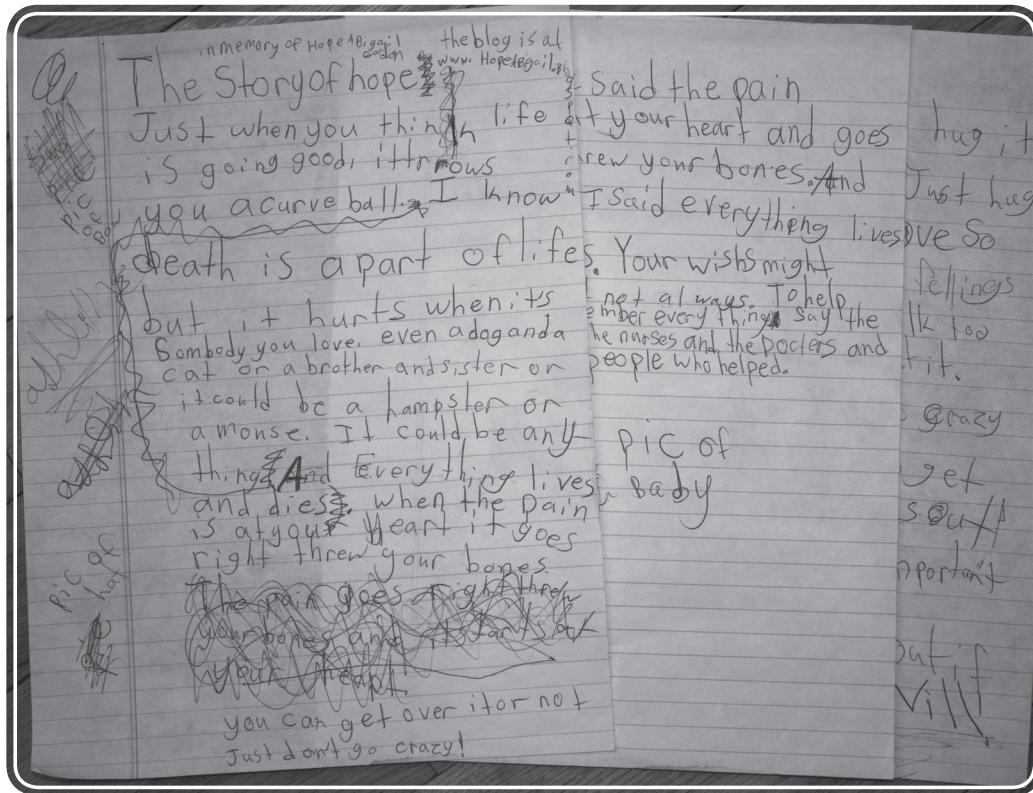 in memory of Hope Abigail
the blog is at
www. HopeAbigail.
The Story of hope
Just when you think life
is going good, it trows
you a curve ball. I know
death is a part of lifes.
but it hurts when its
Sombody you love. even a dog and a
cat or a brother and sister or
it could be a hampster or
a monse. It could be any
thing And Every thing lives
and dies. when the Pain
is at your heart it goes
right threw your bones.
The pain goes right threw
your bones and it starts at
your heart.
you can get over it or not
Just don't go crazy!
pic of
pic of
Said the pain
at your heart and goes
threw your bones. And
I said everything lives
Your wishs might
not always. To help
ember every thing say the
he nurses and the Docters and
people who helped.
pic of
BaBy
hug it
Just hug
ove So
fellings
lk too
t it.
crazy
get
stuff
mportant
but if
Will